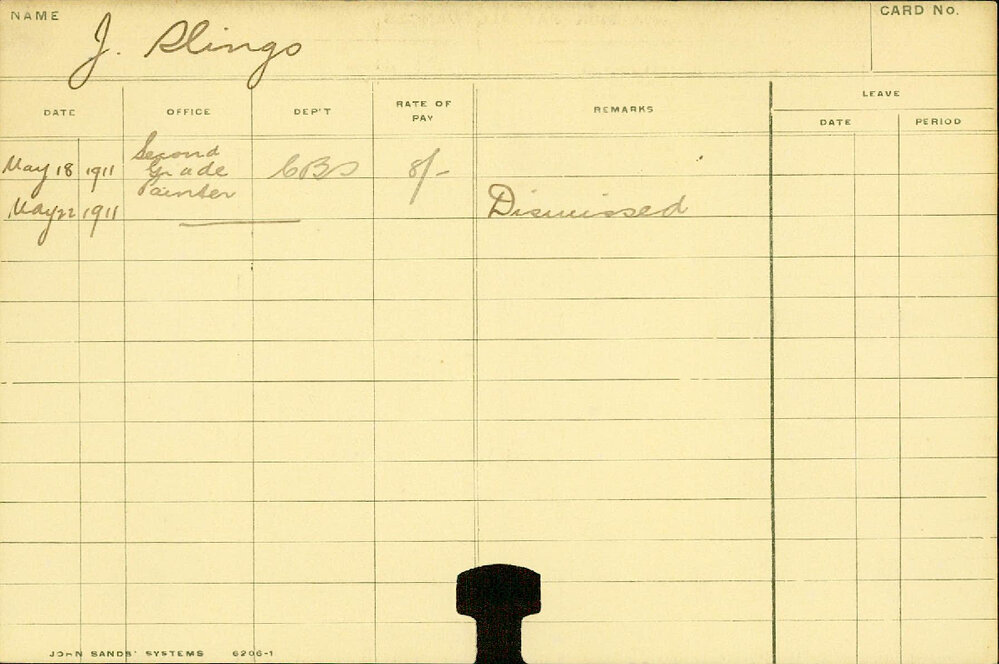 NAME
CARD No.
J. Slingo
LEAVE
DATE OFFICE DEP'T RATE OF PAY REMARKS DATE PERIOD
May 18 1911 Second Grade Painter CBS 8/-
May 22 1911 Dismissed
JOHN SANDS' SYSTEMS 6206-1